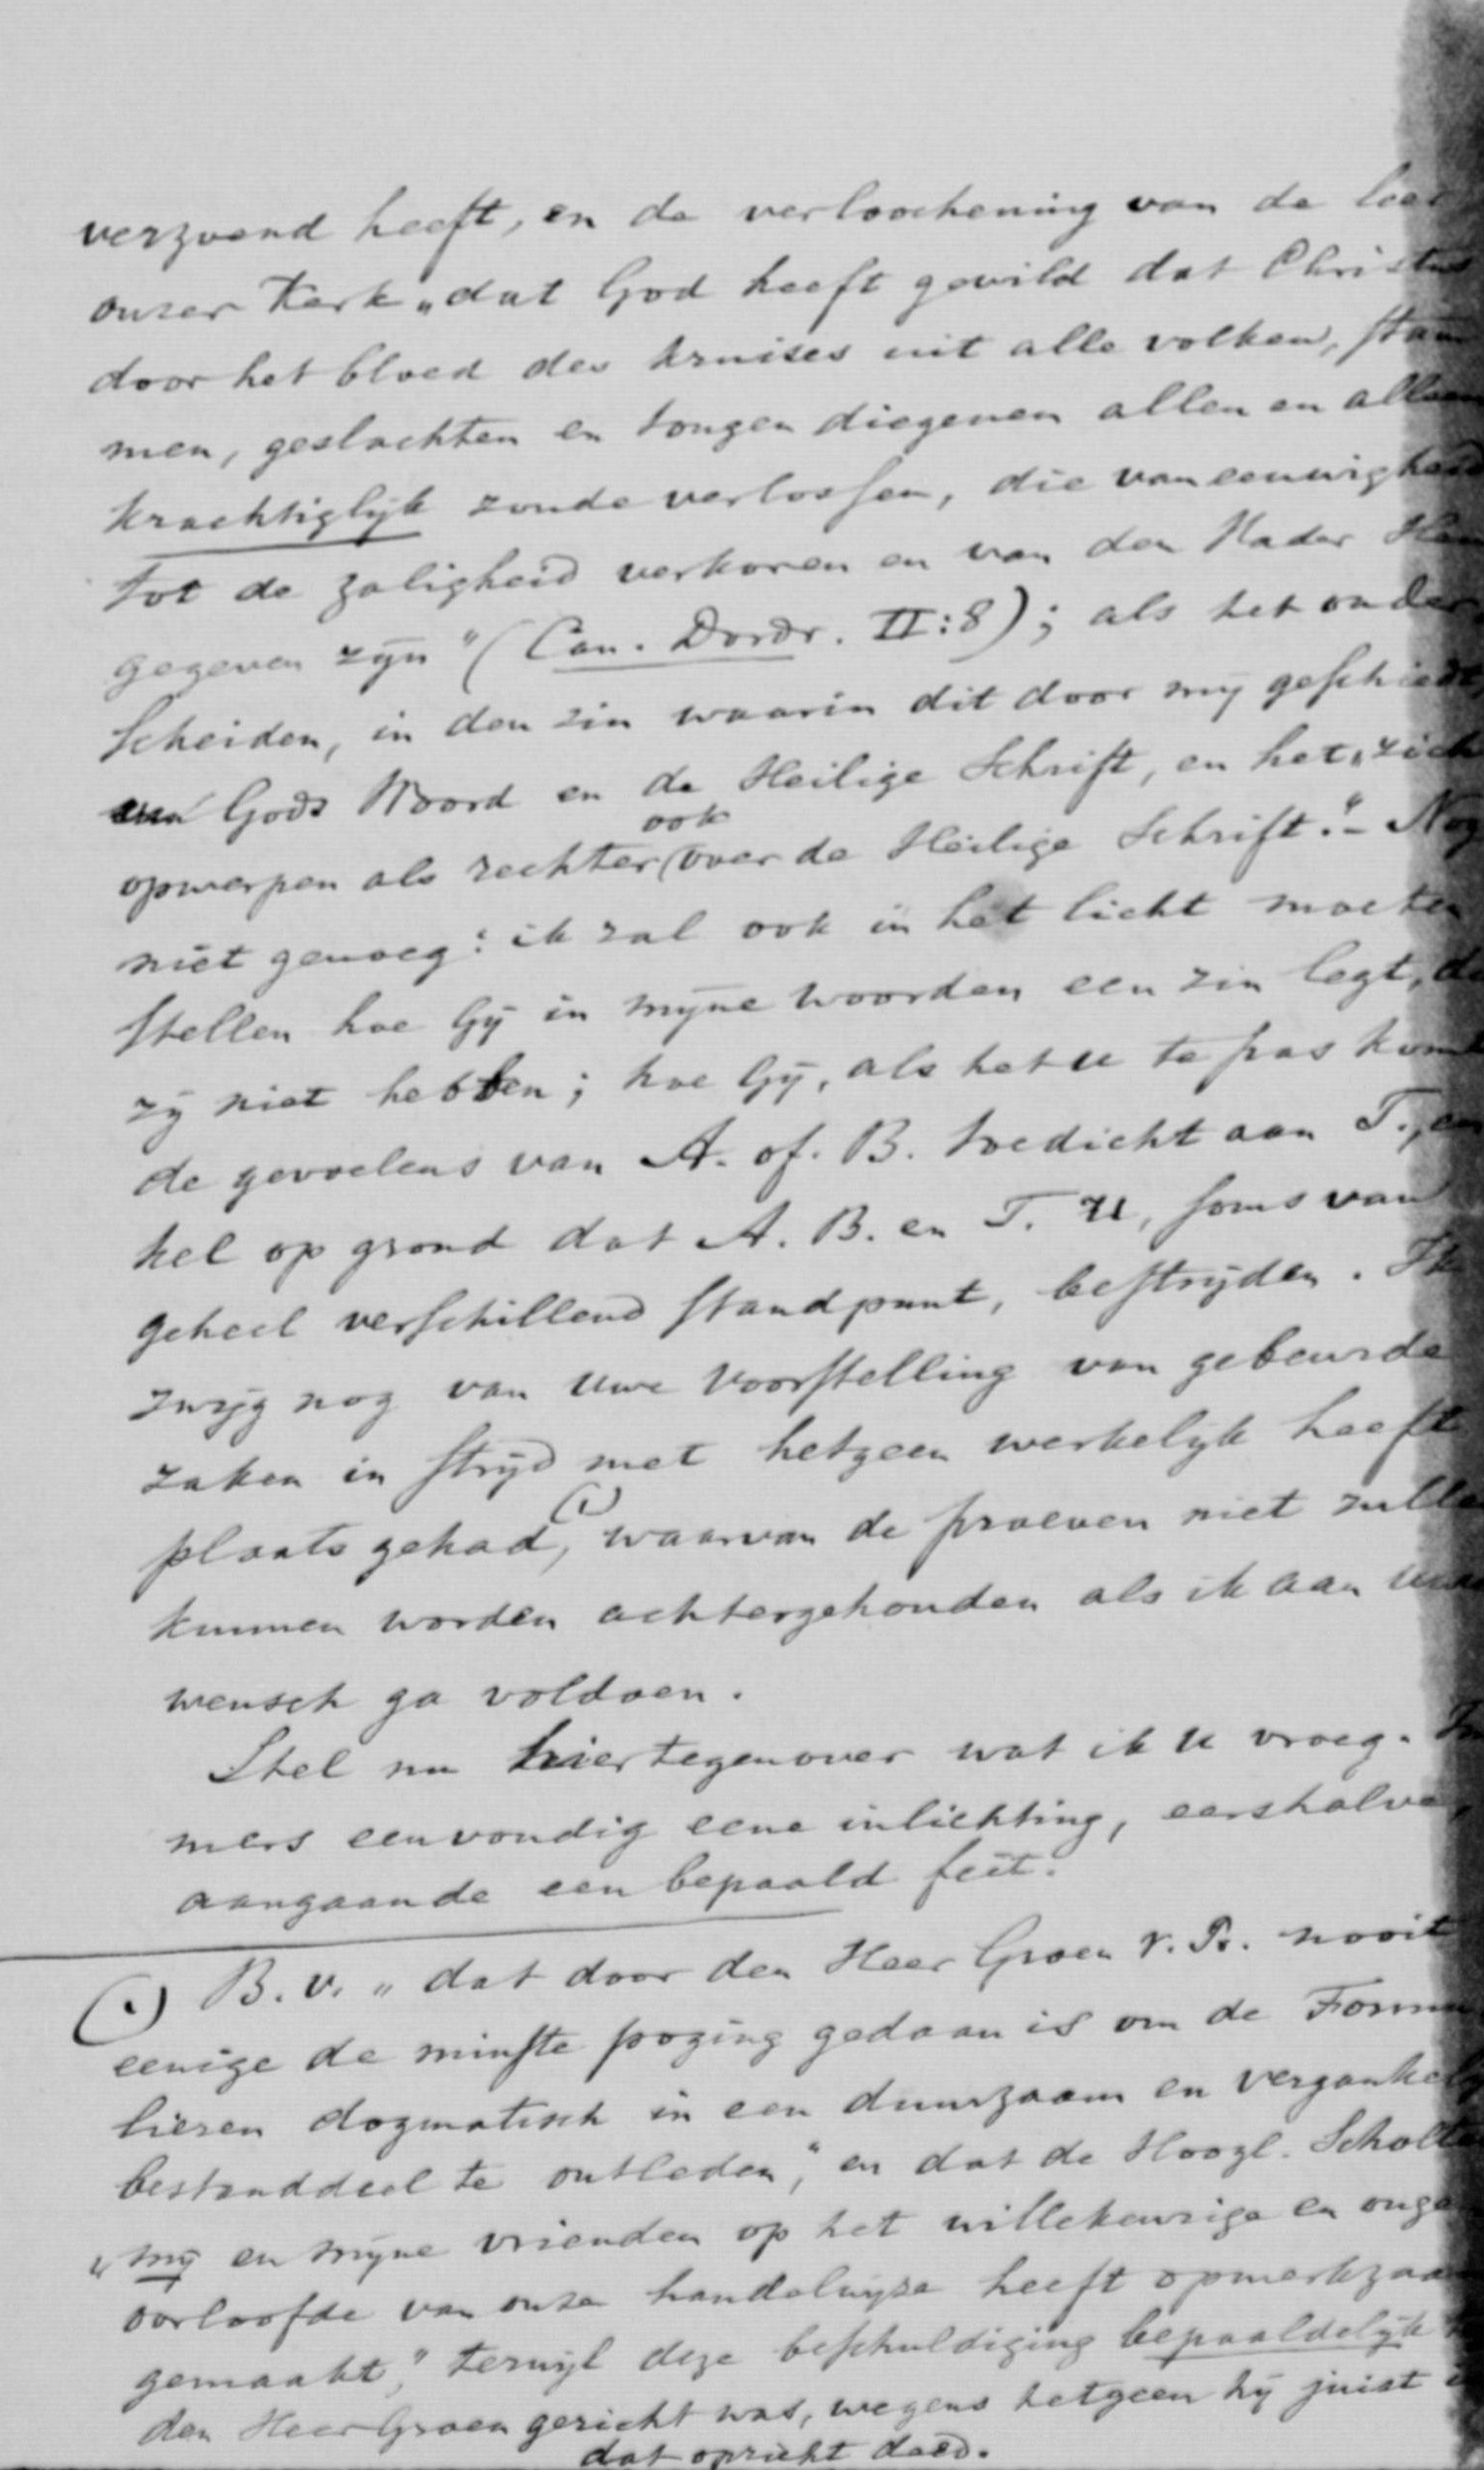 verzoend heeft, en de verloochening van de leer
onzer Kerk „dat God heeft gewild dat Christus
door het bloed des kruises uit alle volken, stam
men, geslachten en tongen diegenen allen en alleen
krachtiglijk zoude verlossen, die van eeuwigheid
tot de zaligheid verkoren en van den Vader Hem
gegeven zijn" (Can. Dordr. II:8); als het onder
scheiden, in den zin waarin dit door mij geschiedt
van Gods Woord en de Heilige Schrift, en het „zich
opwerpen als rechter ook over de Heilige Schrift." – Nog
niet genoeg: ik zal ook in het licht moeten
stellen hoe Gij in mijne woorden een zin legt, d
zij niet hebben; hoe Gij, als het u te pas komt
de gevoelens van A. of. B. toedicht aan T., en
kel op grond dat A. B. en T. U, soms van
geheel verschillend standpunt, bestrijden. Ik
zwijg nog van Uwe voorstelling van gebeurde
zaken in strijd met hetgeen werkelijk heeft
plaats gehad, (1) waarvan de proeven niet zulle
kunnen worden achtergehouden als ik aan uw
wensch ga voldoen.
Stel nu hiertegenover wat ik u vroeg. Im
mers eenvoudig eene inlichting, eershalve,
aangaande een bepaald feit.
(1) B.v. „dat door den Heer Groen v. Pr. nooit
eenige de minste poging gedaan is om de Formu
lieren dogmatisch in een duurzaam en vergankelijk
bestanddeel te ontleden," en dat de Hoogl. Scholte
„mij en mijne vrienden op het willekeurige en onge
oorloofde van onze handelwijze heeft opmerkzaam
gemaakt," terwijl deze beschuldiging bepaaldelijk
den Heer Groen gericht was, wegens hetgeen hij juist
dat opzicht deed.